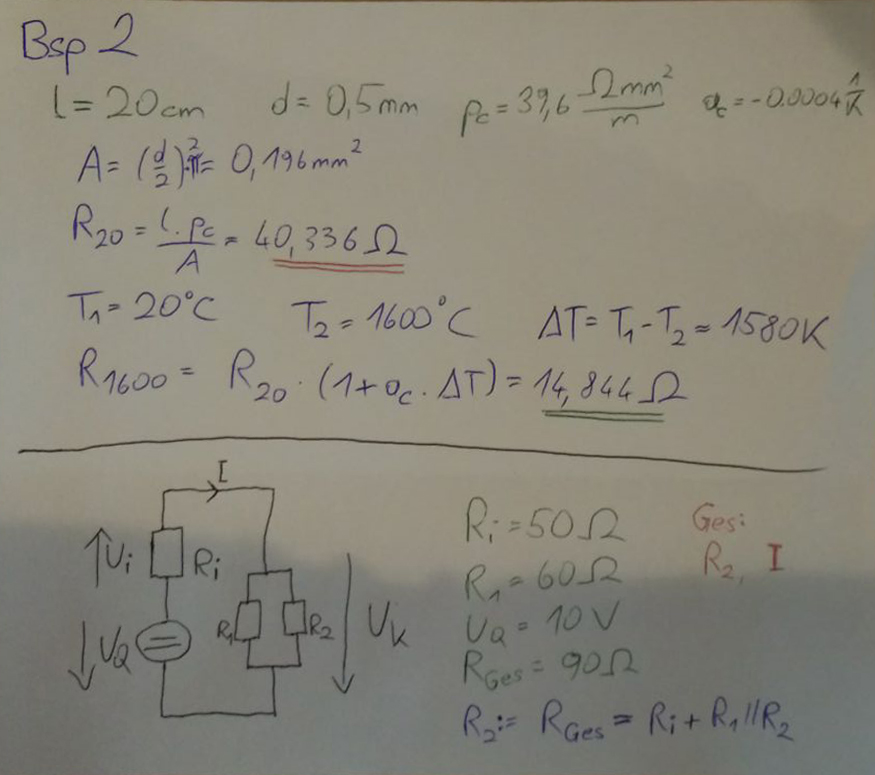 Bsp 2
l = 20cm d = 0,5mm ρc = 39,6 Ωmm²/m αc = -0.0004 1/K
A = (d/2)²·π = 0,196mm²
R20 = l·ρc/A = 40,336Ω
T1 = 20°C T2 = 1600°C ΔT = T1 - T2 = 1580K
R1600 = R20 · (1 + αc · ΔT) = 14,844Ω
I
Ri = 50Ω Ges:
Ui Ri R1 = 60Ω R2, I
UQ R1 R2 Uk UQ = 10V
RGes = 90Ω
R2:= RGes = Ri + R1//R2